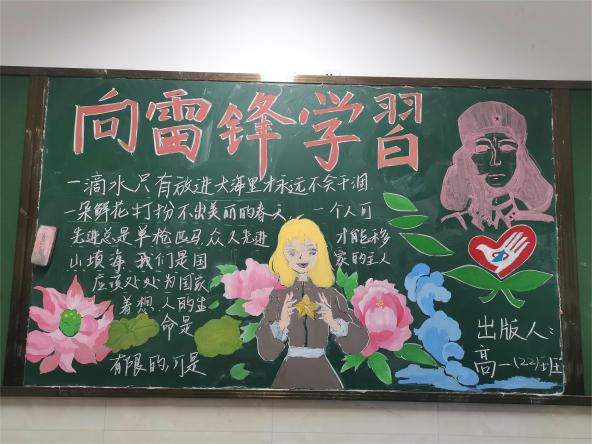 向雷锋学習
一滴水只有放进大海里才永远不会干涸
一朵鲜花打扮不出美丽的春天, 一个人可
先进总是单枪匹马,众人先进 才能移
山填海,我们是国 家的主人
应该处处为国家
着想,人的生
命是
有限的,可是
出版人:
高一(22)班